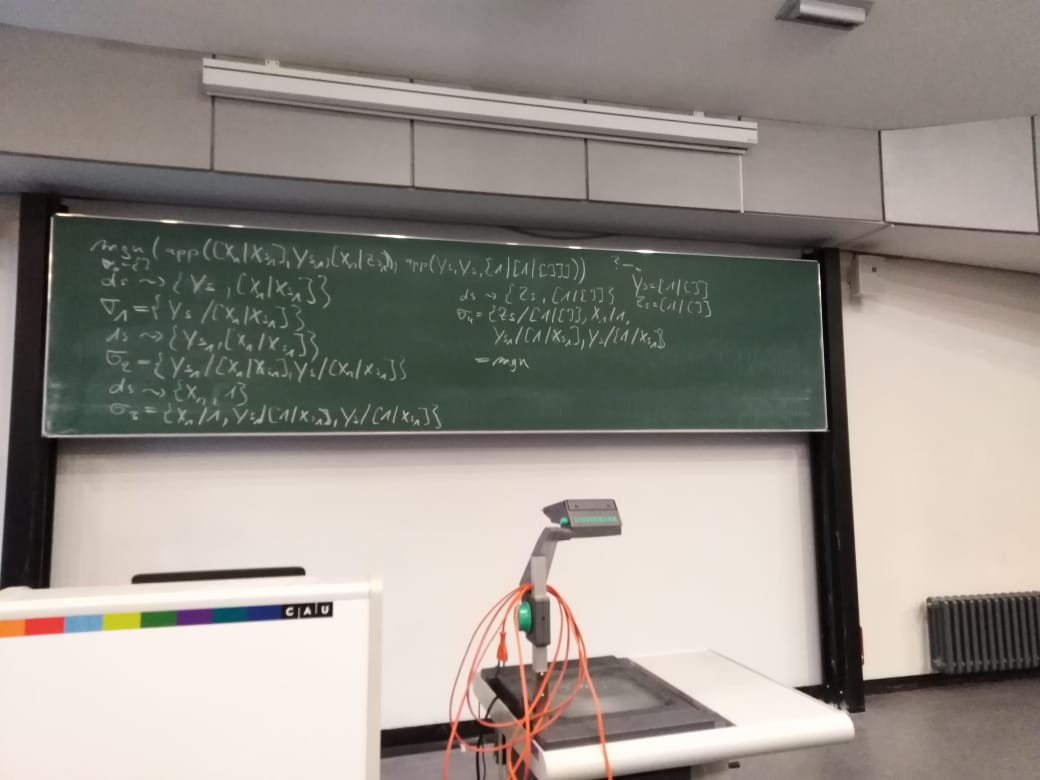 mgu(app([X₁|Xs₁],Ys₁,[X₁|Zs₁]), app(Ys,Ys,[1|[1|[]]]))
σ₀={}
ds ⇝ {Ys, [X₁|Xs₁]}
σ₁={Ys/[X₁|Xs₁]}
ds ⇝ {Ys₁,[X₁|Xs₁]}
σ₂={Ys₁/[X₁|Xs₁],Ys/[X₁|Xs₁]}
ds ⇝ {X₁, 1}
σ₃={X₁/1, Ys₁/[1|Xs₁], Ys/[1|Xs₁]}
ds ⇝ {Zs, [1|[]]}
σ₄={Zs/[1|[]], X₁/1,
Ys₁/[1|Xs₁], Ys/[1|Xs₁]}
= mgu
?-
Ys=[1|[]]
Zs=[1|[]]
C|A|U